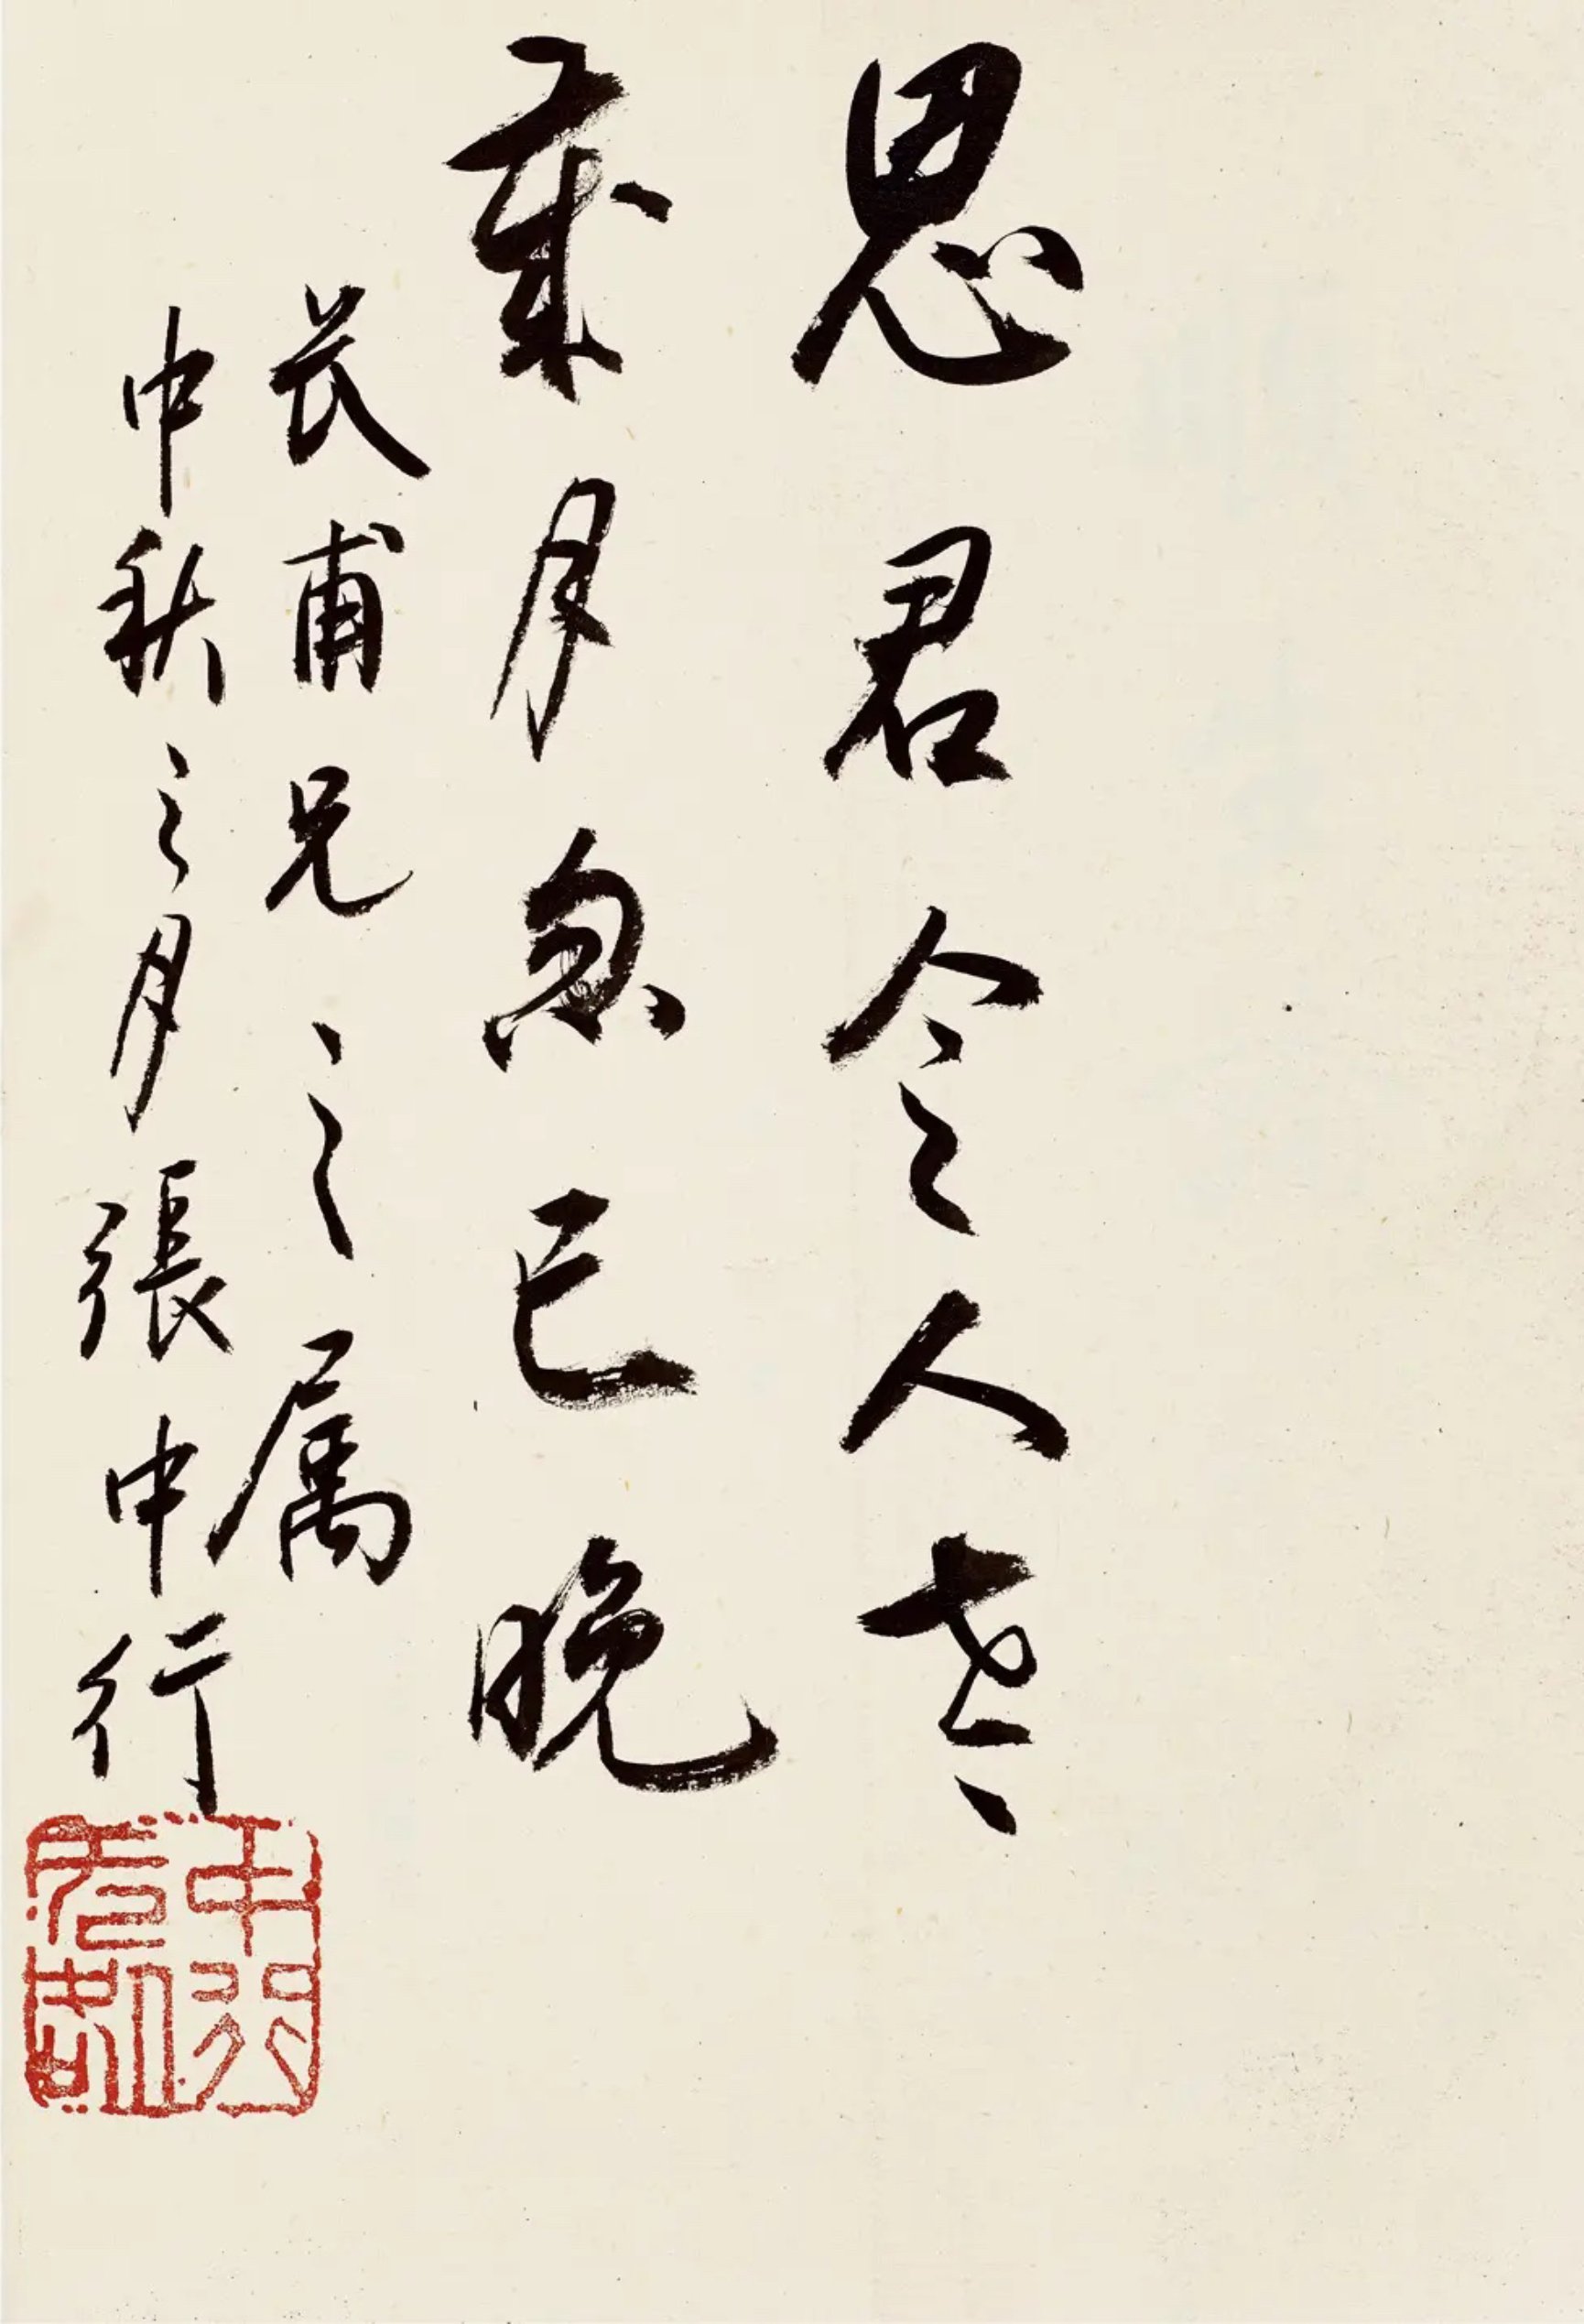 思君令人老
岁月忽已晚
长甫兄之属
中秋之月張中行